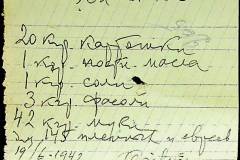 20 кгр. картошки
1 кгр. пост. масла
1 кгр. соли
3 кгр. фасоли
42 кгр. муки
145 пленных и евреев
19/6-1942